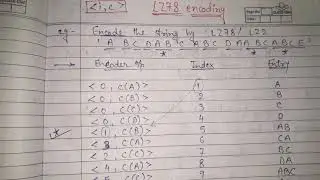 <i,c> LZ78 encoding
eg:- Encode the string by LZ78/LZ2
A B C D A B C A B C D A A B C A B C E
Encoder o/p Index Entry
<0, C(A)> 1 A
<0, C(B)> 2 B
<0, C(C)> 3 C
<0, C(D)> 4 D
<1, C(B)> 5 AB
<3, C(A)> 6 CA
<2, C(C)> 7 BC
<4, C(A)> 8 DA
9 ABC